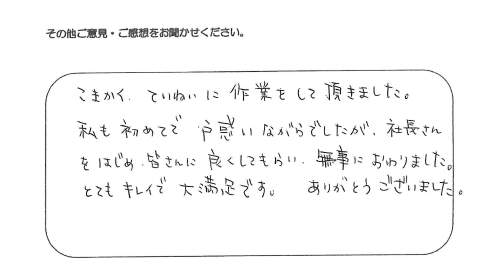 その他ご意見・ご感想をお聞かせください。
こまかく、ていねいに作業をして頂きました。
私も初めてで戸惑いながらでしたが、社長さん
をはじめ、皆さんに良くしてもらい、無事におわりました。
とてもキレイで大満足です。 ありがとうございました。